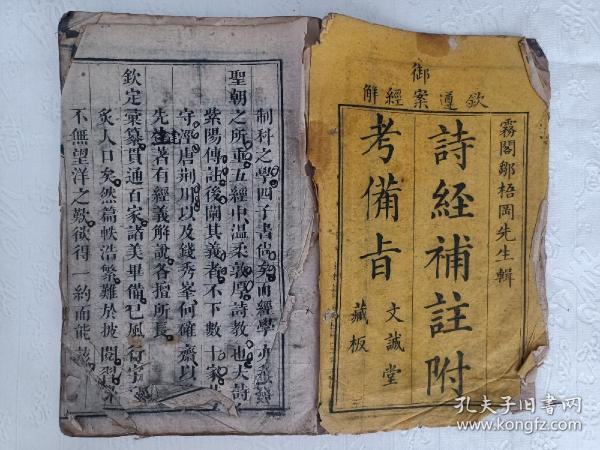 御
欽遵案經解
霧閣鄒梧岡先生輯
詩經補註附
考備旨
文誠堂
藏板
制科之學四子書尚矣而經學亦
聖朝之所重五經中溫柔敦厚詩教也夫詩
紫陽傳註後闡其義者不下數十家
守溪唐荊川以及錢秀峯何確齋以
先達著有經義解說各擅所長
欽定彙纂貫通百家諸美畢備已風行宇
炙人口矣然篇帙浩繁難於披閱
不無望洋之歎欲得一約而能
孔夫子旧书网
www.kongfz.com